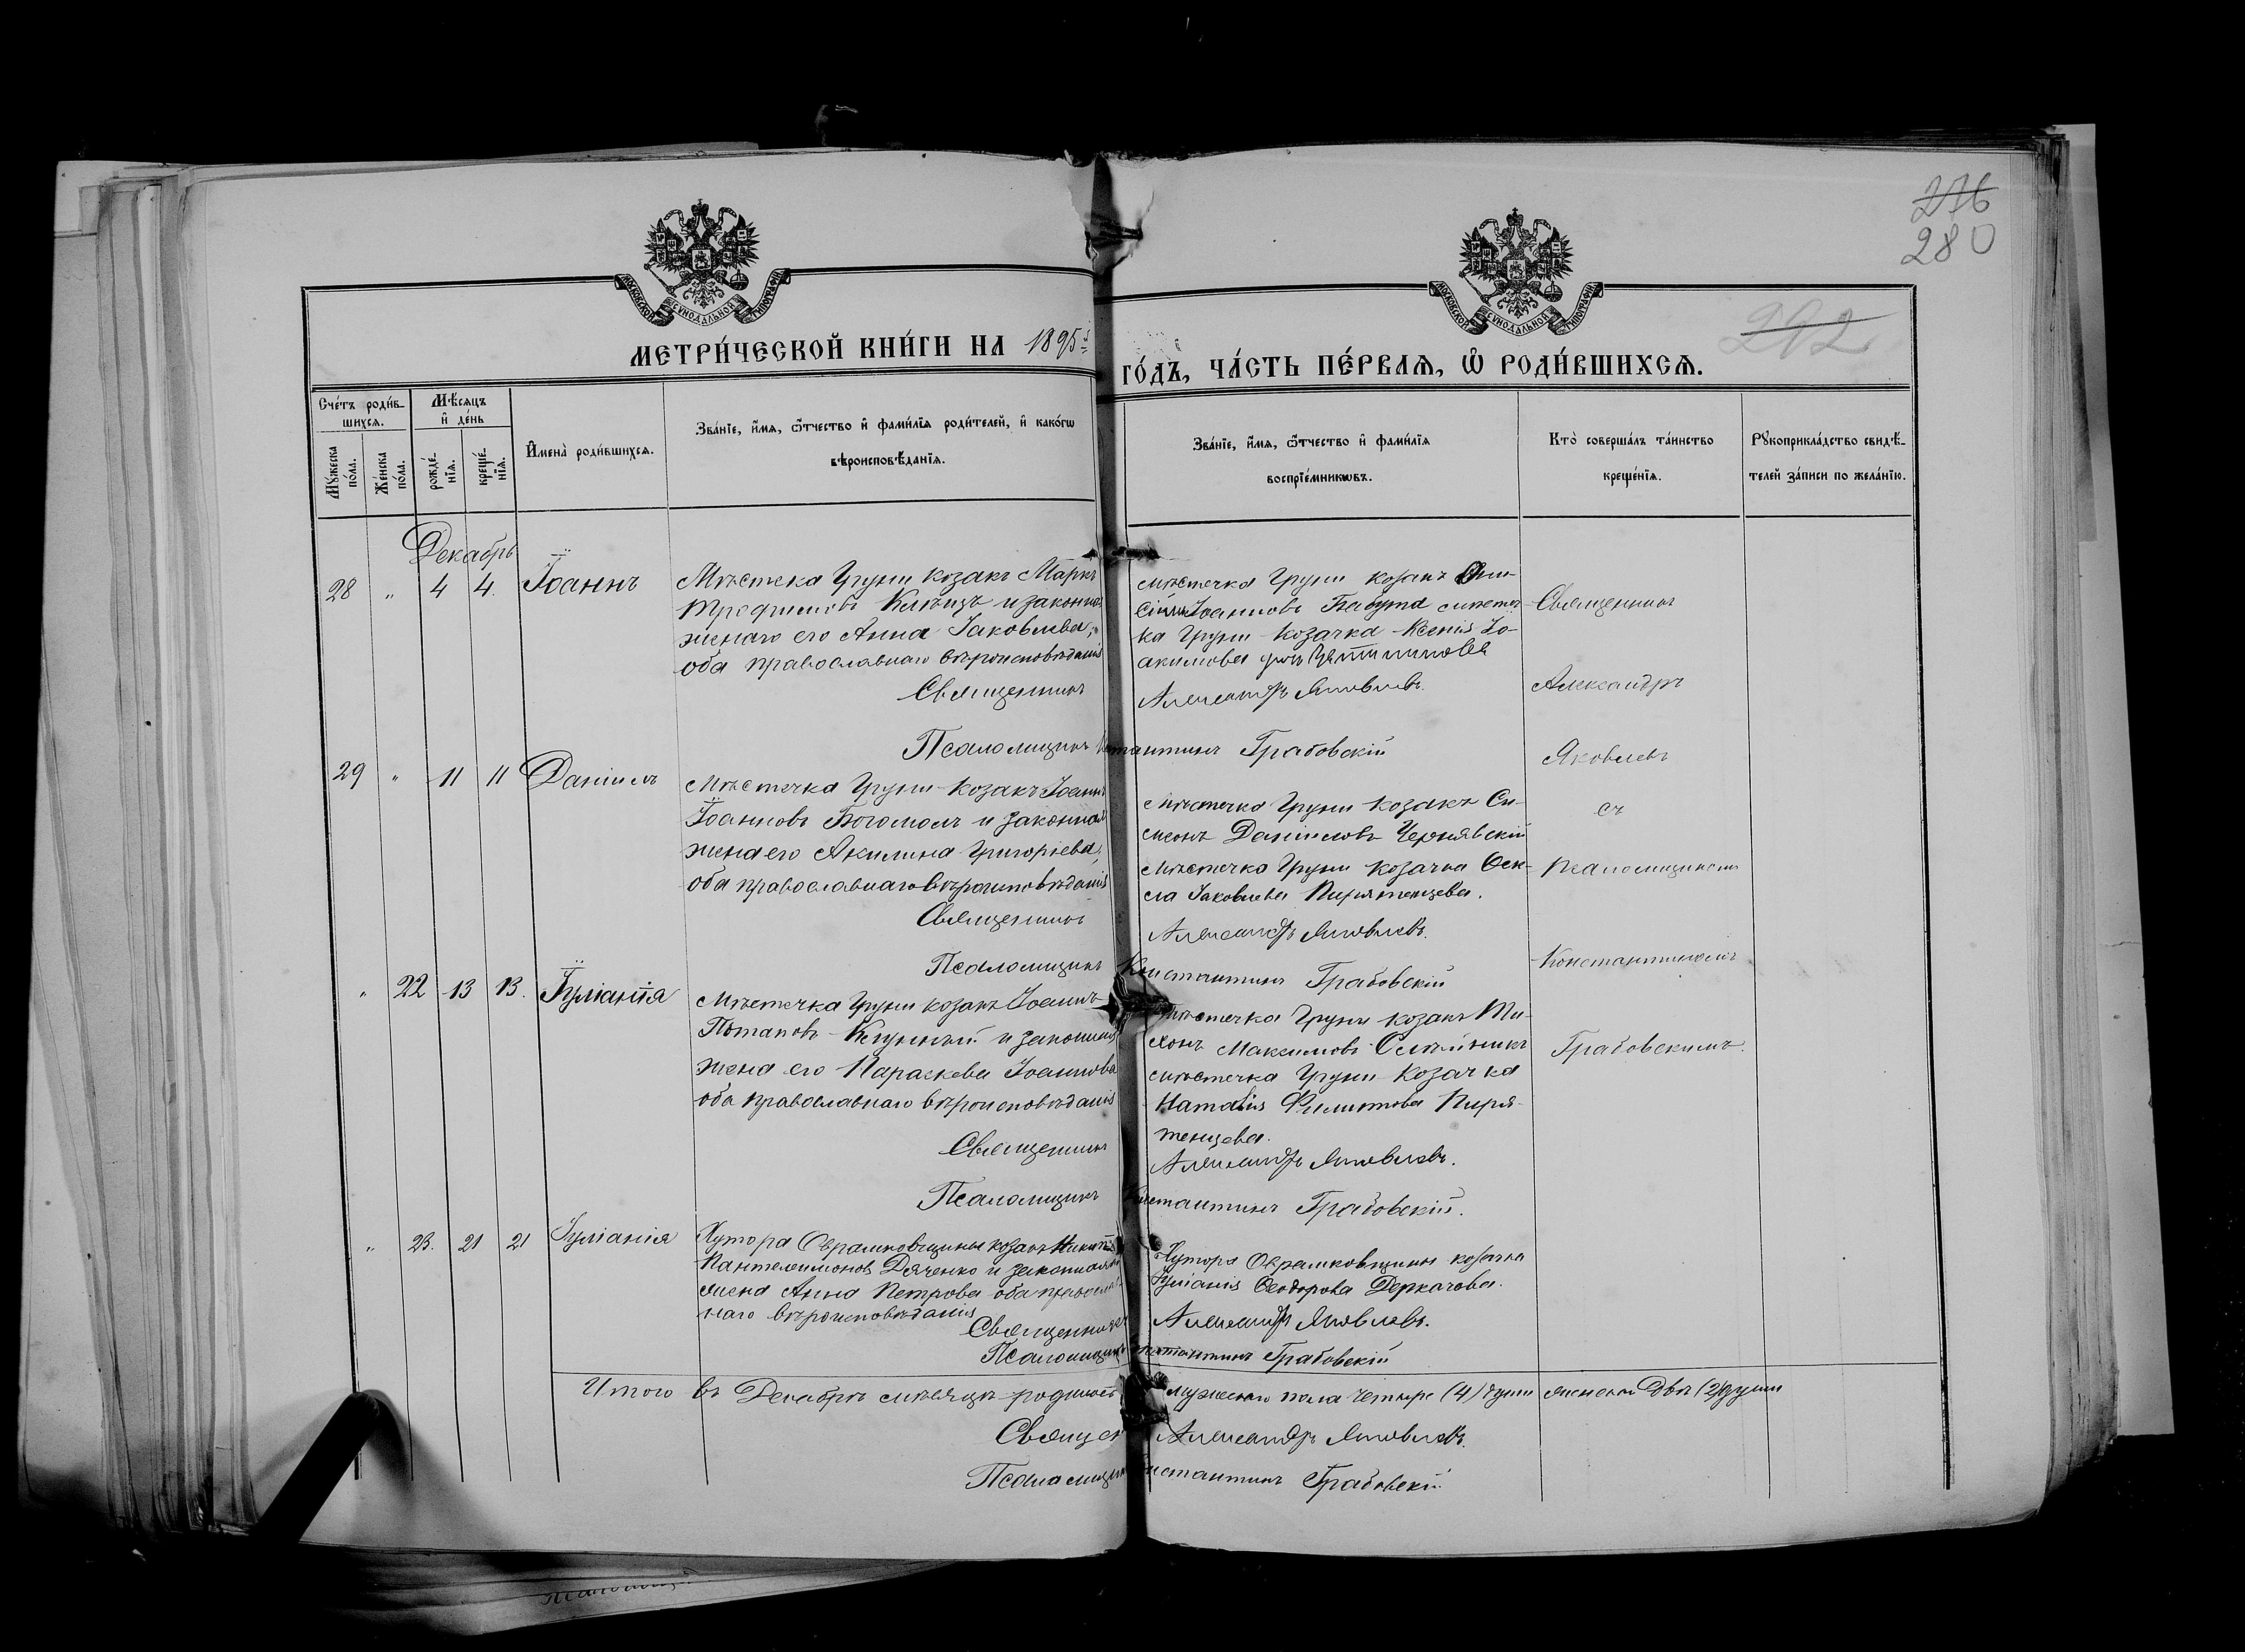 276
280
292
МОСКОВСКОЙ СУНОДАЛЬНОЙ ТИПОГРАФІИ
МОСКОВСКОЙ СУНОДАЛЬНОЙ ТИПОГРАФІИ
МЕТРИ́ЧЕСКОЙ КНИ́ГИ НА 1895
ГО́ДЪ, ЧА́СТЬ ПЕ́РВАЯ, Ѡ҆ РОДИ́ВШИХСЯ.
Сче́тъ роди́в-
шихся.
Мѣ́сяцъ
и҆ де́нь
Мꙋ́жеска по́ла.
Же́нска по́ла.
рожде́-
нїя.
креще́-
нїя.
И҆мена̀ роди́вшихся.
Зва́нїе, и҆́мя, ѻ҆́тчество и҆ фами́лїя роди́телей, и҆ како́гѡ
вѣроисповѣ́данїя.
Зва́нїе, и҆́мя, ѻ҆́тчество и҆ фами́лїя
воспрїе́мникѡвъ.
Кто̀ соверша́лъ та́инство
креще́нїя.
Рꙋкоприкла́дство свидѣ́-
телей за́писи по жела́нїю.
Декабрь
28 " 4 4. Іоаннъ
Мѣстечка Груни козакъ Маркъ
Трофимовъ и законная
его Анна Іаковлева,
оба православнаго вѣроисповѣданія
Священникъ
Псаломщикъ
мѣстечка Груни козакъ
Іоанновъ Бабута мѣстеч-
ка Груни козачка Ксенія Іо-
акимова
Александръ Яковлевъ.
Константинъ Грабовскій
Священникъ
Александръ
Яковлевъ
съ
псаломщикомъ
Константиномъ
Грабовскимъ.
29 " 11 11 Даніилъ
Мѣстечка Груни козакъ Іоаннъ
Іоанновъ Богомолъ и законная
жена его Акилина Григорьева,
оба православнаго вѣроисповѣданія
Священникъ
Псаломщикъ
Мѣстечка Груни козакъ Си-
меонъ Даніиловъ Чернявскій
мѣстечка Груни козачка Фек-
ла Іаковлева Пирятенцева.
Александръ Яковлевъ.
Константинъ Грабовскій
" 22 13 13. Іуліанія
Мѣстечка Груни козакъ Іоаннъ
Потаповъ и законная
жена его Параскева Іоаннова
оба православнаго вѣроисповѣданія
Священникъ
Псаломщикъ
Мѣстечка Груни козакъ Ти-
хонъ Максимовъ Олейникъ
мѣстечка Груни козачка
Наталія Филиппова Пиря-
тенцева.
Александръ Яковлевъ.
Константинъ Грабовскій.
" 23. 21 21 Іуліанія
Хутора Абрамковщины козакъ Никита
Пантелеимоновъ Дяченко и законная
жена Анна Петрова оба православ-
наго вѣроисповѣданія
Священникъ
Псаломщикъ
Хутора Абрамковщины козачка
Іуліанія Феодорова Деркачова.
Александръ Яковлевъ.
Константинъ Грабовскій
Итого въ Декабрѣ мѣсяцѣ родилось мужескаго пола четыре (4) души женскаго двѣ (2) души
Священ Александръ Яковлевъ.
Псаломщикъ Константинъ Грабовскій